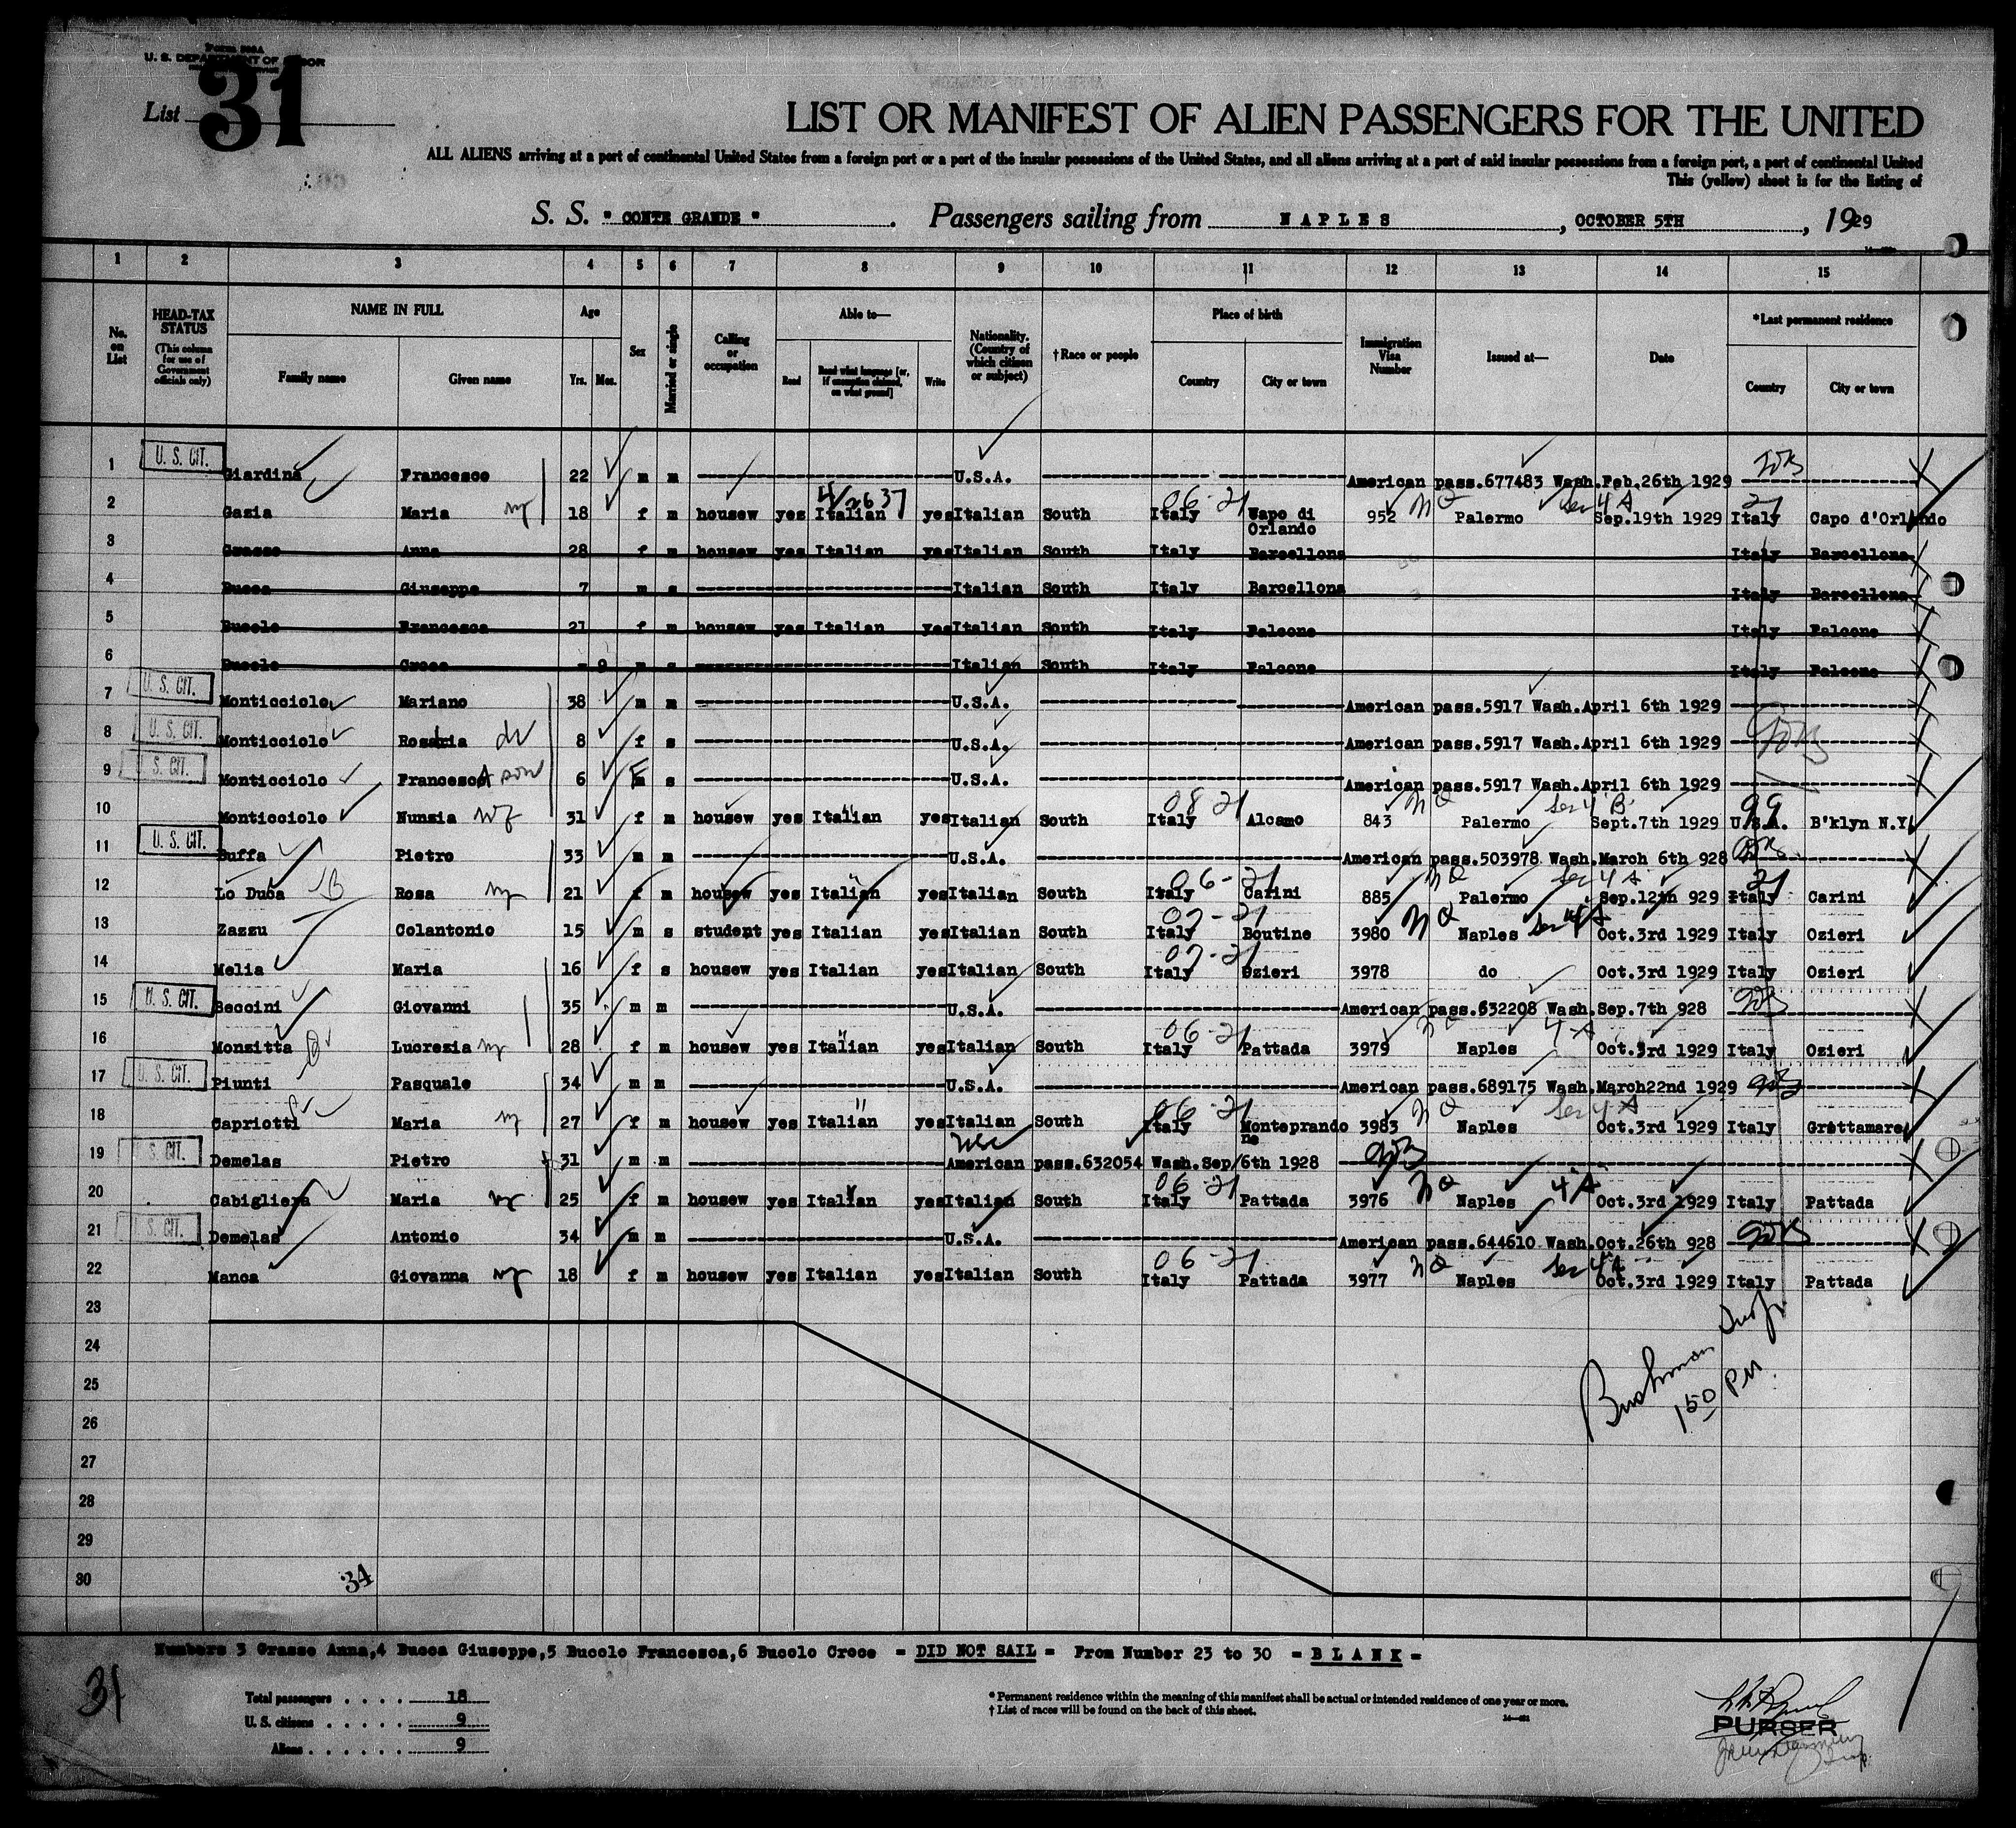 Form 500A
U. S. DEPARTMENT OF LABOR
List 31
LIST OR MANIFEST OF ALIEN PASSENGERS FOR THE UNITED
ALL ALIENS arriving at a port of continental United States from a foreign port or a port of the insular possessions of the United States, and all aliens arriving at a port of said insular possessions from a foreign port, a port of continental United
This (yellow) sheet is for the listing of
S. S. "CONTE GRANDE". Passengers sailing from NAPLES, OCTOBER 5TH, 1929
1 2 3 4 5 6 7 8 9 10 11 12 13 14 15
No. on List
HEAD-TAX STATUS (This column for use of Government officials only)
NAME IN FULL Family name Given name
Age Yrs. Mos.
Sex
Married or single
Calling or occupation
Able to— Read Read what language [or, if exemption claimed, on what ground] Write
Nationality. (Country of which citizen or subject)
†Race or people
Place of birth Country City or town
Immigration Visa Number
Issued at—
Date
*Last permanent residence Country City or town
1 U. S. CIT. Giardina Francesco 22 m m U.S.A. American pass.677483 Wash.Feb.26th 1929
2 Gazia Maria 18 f m housew yes Italian yes Italian South Italy Wapo di Orlando 952 Palermo Sep.19th 1929 Italy Capo d'Orlando
3 Grasso Anna 28 f m housew yes Italian yes Italian South Italy Barcellona Italy Barcellona
4 Bucca Giuseppe 7 m s Italian South Italy Barcellona Italy Barcellona
5 Bucolo Francesca 21 f m housew yes Italian yes Italian South Italy Falcone Italy Falcone
6 Bucolo Croce - 9 m s Italian South Italy Falcone Italy Falcone
7 U. S. CIT. Monticciolo Mariano 38 m m U.S.A. American pass.5917 Wash.April 6th 1929
8 U. S. CIT. Monticciolo Rosaria 8 f s U.S.A. American pass.5917 Wash.April 6th 1929
9 U. S. CIT. Monticciolo Francesca son 6 F s U.S.A. American pass.5917 Wash.April 6th 1929
10 Monticciolo Nunzia wf 31 f m housew yes Italian yes Italian South Italy Alcamo 843 Palermo Sept.7th 1929 U.S.A. B'klyn N.Y.
11 U. S. CIT. Buffa Pietro 33 m m U.S.A. American pass.503978 Wash.March 6th 928
12 Lo Duca Rosa 21 f m housew yes Italian yes Italian South Italy Carini 885 Palermo Sep.12th 929 Italy Carini
13 Zazzu Colantonio 15 m s student yes Italian yes Italian South Italy Boutine 3980 Naples Oct.3rd 1929 Italy Ozieri
14 Melia Maria 16 f s housew yes Italian yes Italian South Italy Ozieri 3978 do Oct.3rd 1929 Italy Ozieri
15 U. S. CIT. Beccini Giovanni 35 m m U.S.A. American pass.632208 Wash.Sep.7th 928
16 Monzitta Lucrezia 28 f m housew yes Italian yes Italian South Italy Pattada 3979 Naples Oct.3rd 1929 Italy Ozieri
17 U. S. CIT. Piunti Pasquale 34 m m U.S.A. American pass.689175 Wash.March22nd 1929
18 Capriotti Maria 27 f m housew yes Italian yes Italian South Italy Monteprandone 3983 Naples Oct.3rd 1929 Italy Grottamare
19 U. S. CIT. Demelas Pietro 31 m m American pass.632054 Wash.Sep/6th 1928
20 Cabigliera Maria 25 f m housew yes Italian yes Italian South Italy Pattada 3976 Naples Oct.3rd 1929 Italy Pattada
21 U. S. CIT. Demelas Antonio 34 m m U.S.A. American pass.644610 Wash.Oct.26th 928
22 Manca Giovanna 18 f m housew yes Italian yes Italian South Italy Pattada 3977 Naples Oct.3rd 1929 Italy Pattada
23
24
25
26
27
28
29
30
Bushman Insp
1 50 PM.
34
Numbers 3 Grasso Anna,4 Bucca Giuseppe,5 Bucolo Francesca,6 Bucolo Croce = DID NOT SAIL = From Number 23 to 30 = BLANK =
31
Total passengers . . . . 18
U. S. citizens . . . . . 9
Aliens . . . . . . 9
* Permanent residence within the meaning of this manifest shall be actual or intended residence of one year or more.
† List of races will be found on the back of this sheet.
PURSER